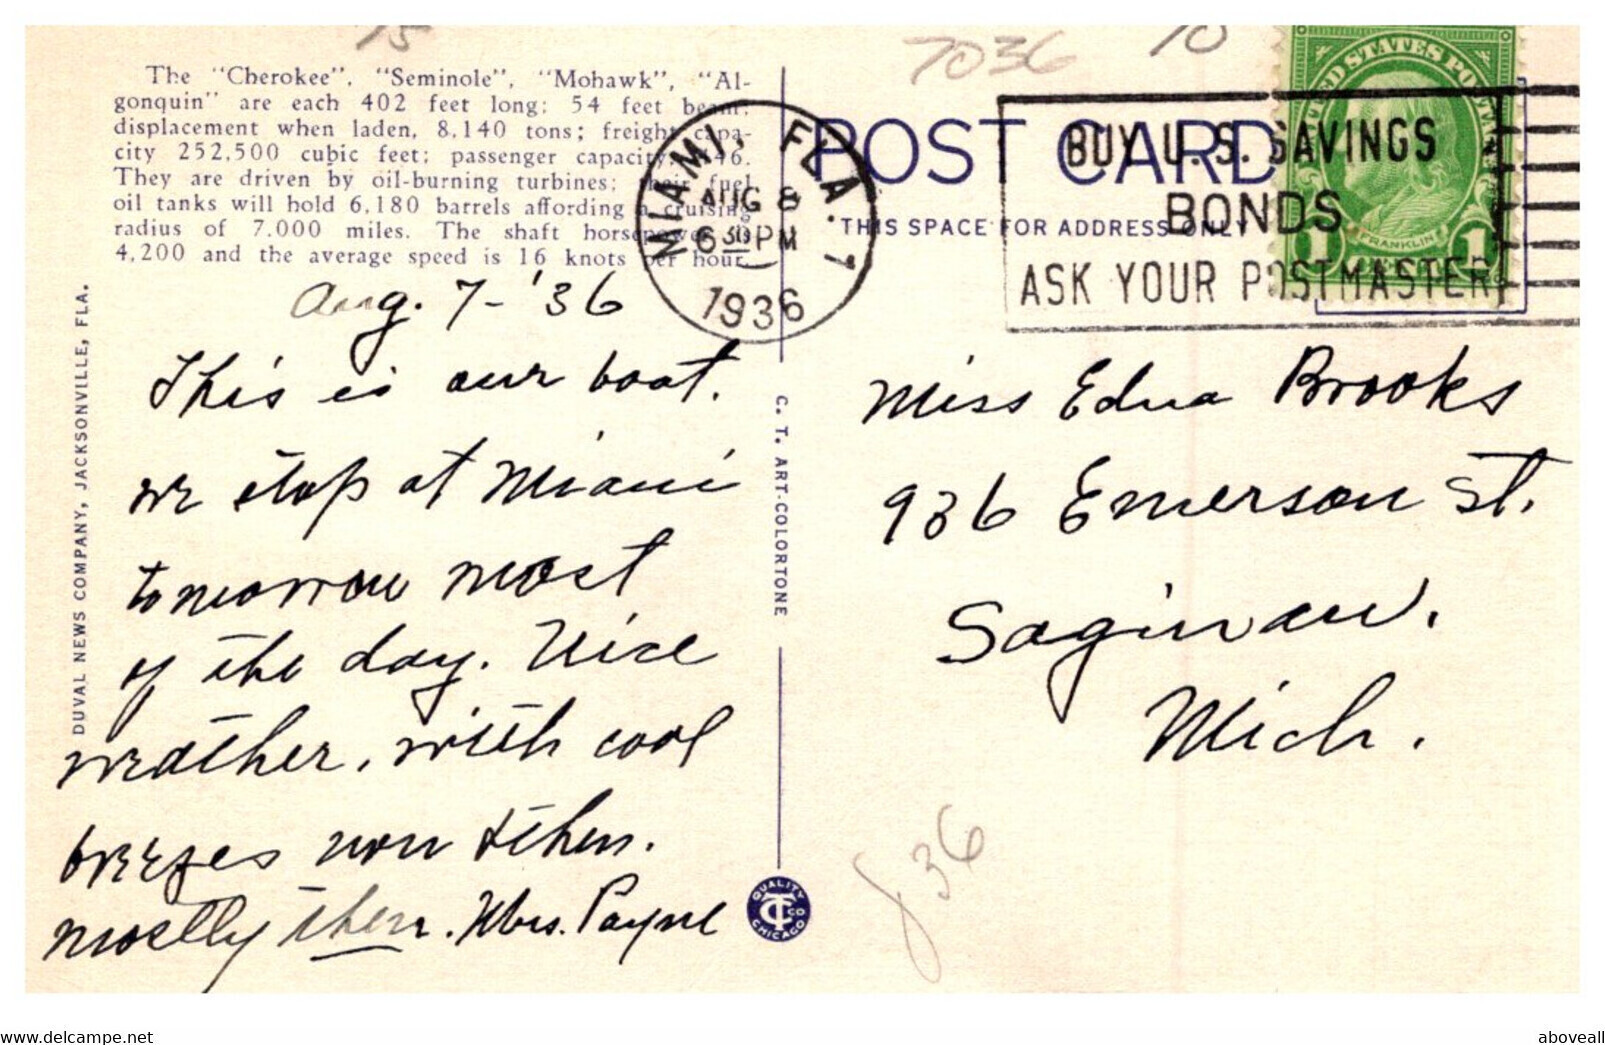 15
7036
10
The "Cherokee", "Seminole", "Mohawk", "Al-
gonquin" are each 402 feet long; 54 feet beam;
displacement when laden, 8,140 tons; freight capa-
city 252,500 cubic feet; passenger capacity, 446.
They are driven by oil-burning turbines; their fuel
oil tanks will hold 6,180 barrels affording a cruising
radius of 7,000 miles. The shaft horsepower is
4,200 and the average speed is 16 knots per hour.
DUVAL NEWS COMPANY, JACKSONVILLE, FLA.
MIAMI, FLA. 1
AUG 8
6 30 PM
1936
POST CARD
THIS SPACE FOR ADDRESS ONLY
BUY U. S. SAVINGS
BONDS
ASK YOUR POSTMASTER
UNITED STATES POSTAGE
FRANKLIN
1 1
Aug. 7-'36
This is our boat.
we stop at Miami
tomorrow most
of the day. Nice
weather, with cool
breezes now & then.
mostly then. Mrs. Payne
C. T. ART-COLORTONE
QUALITY
CT CO
CHICAGO
Miss Edna Brooks
936 Emerson St.
Saginaw.
Mich.
836
www.delcampe.net
aboveall